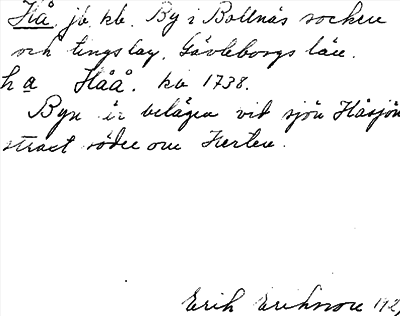 Hå jb. kb. By i Bollnäs socken
och tingslag, Gävleborgs län.
h a Håå. kb 1738.
Byn är belägen vid sjön Håsjön
strax söder om Herten.
Erik Eriksson 192